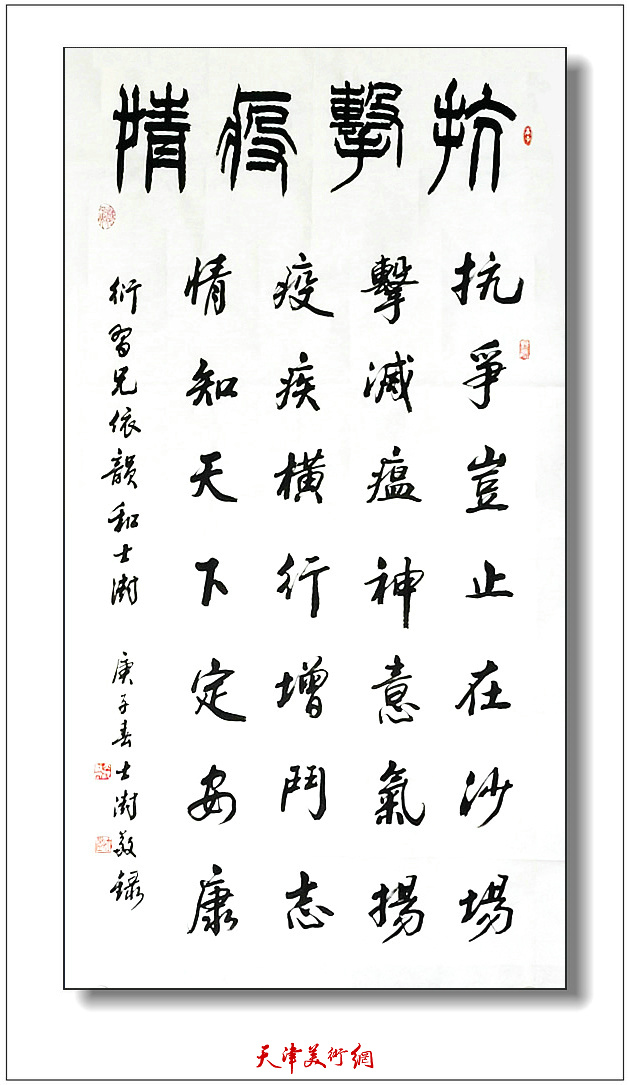 抗擊疫情
抗爭豈止在沙場
擊滅瘟神意氣揚
疫疾橫行增鬥志
情知天下定安康
衍習兄依韻和士澍 庚子春士澍敬錄
天津美術網